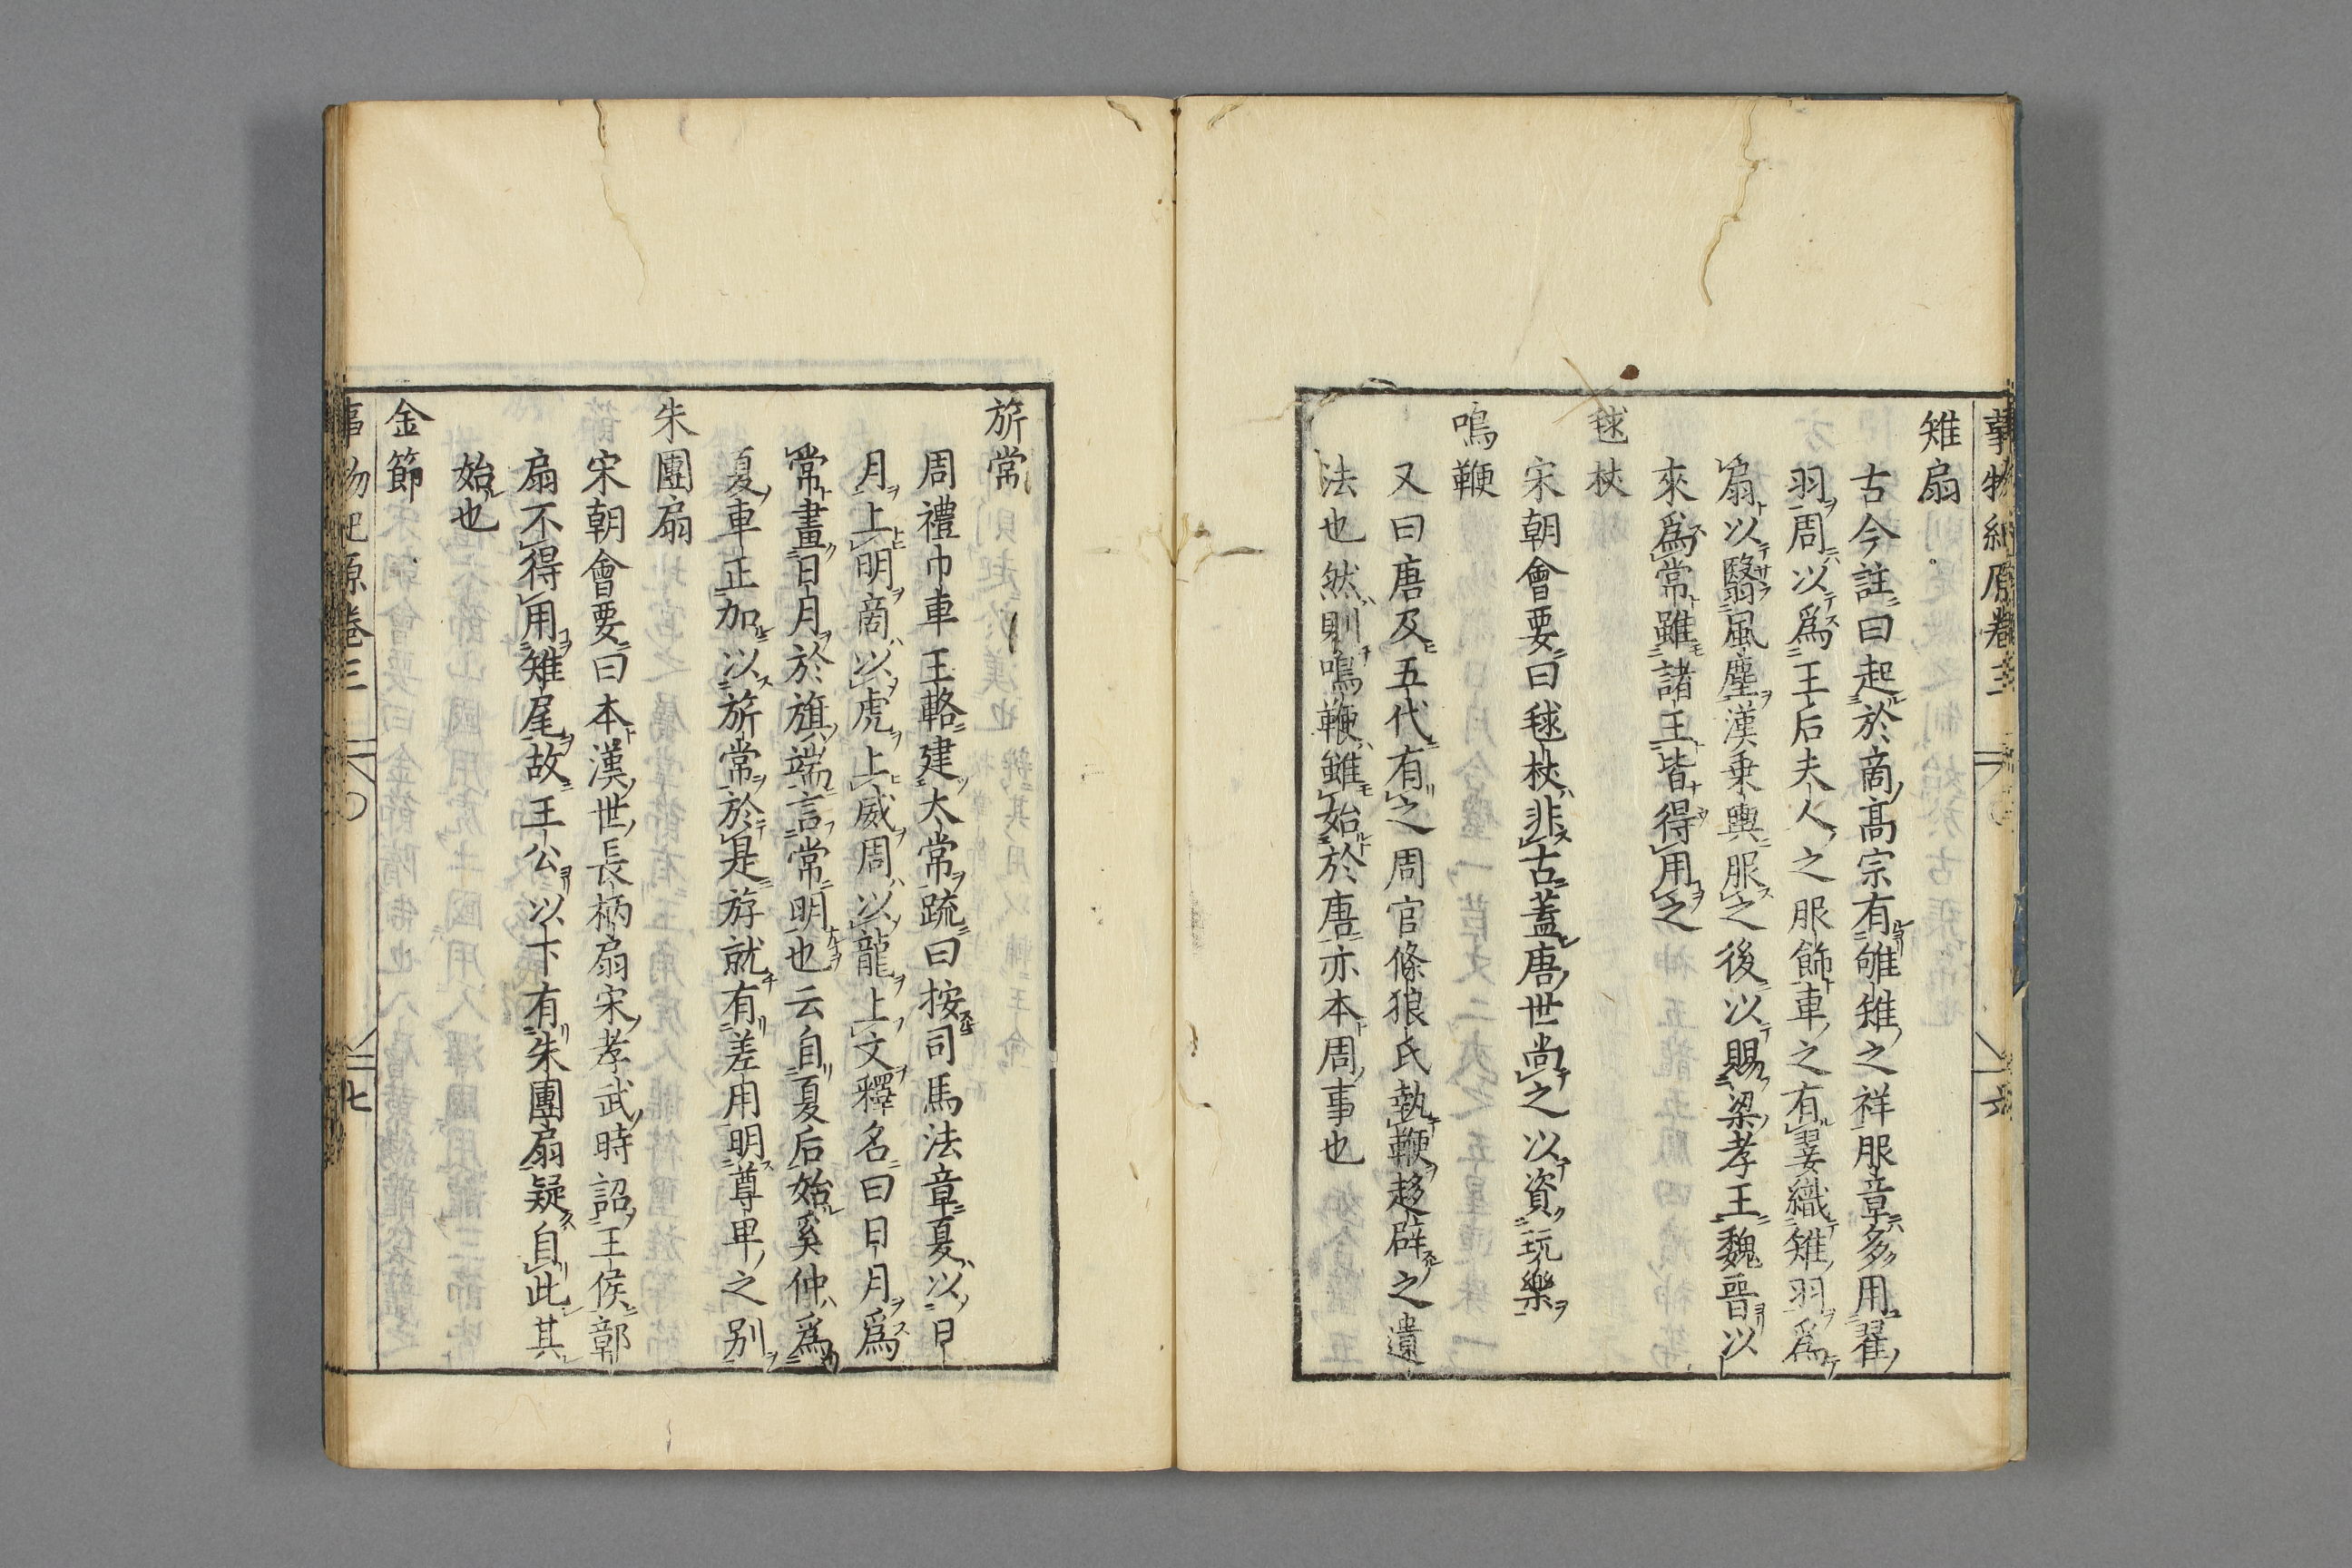 事物紀原卷三 六
雉扇
古今註曰起於商高宗有雊雉之祥服章多用翟
羽周以爲王后夫人之服飾車之有翣織雉羽爲
扇以翳風塵漢乗輿服之後以賜梁孝王魏晉以
來爲常雖諸王皆得用之
毬杖
宋朝會要曰毬杖非古蓋唐世尚之以資玩樂
鳴鞭
又曰唐及五代有之周官條狼氏執鞭趍辟之遺
法也然則鳴鞭雖始於唐亦本周事也
旂常
周禮巾車王輅建太常疏曰按司馬法章夏以日
月上明商以虎上威周以龍上文釋名曰日月爲
常畫日月於旗端言常明也云自夏后始奚仲爲
夏車正加以旂常於是斿就有差用明尊卑之别
朱團扇
宋朝會要曰本漢世長柄扇宋孝武時詔王侯鄣
扇不得用雉尾故王公以下有朱團扇疑自此其
始也
金節
事物紀原卷三 七